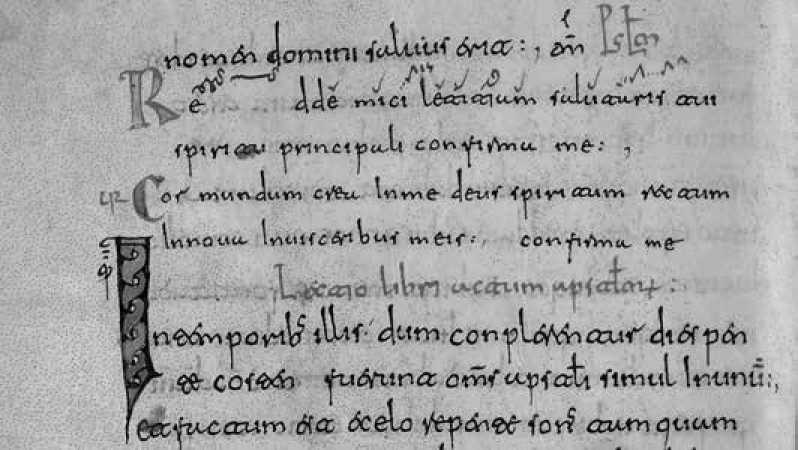 nomen domini saluus erit :,
Re dde mici letitiam salutaris tui
spiritu principali confirma me : ,
Cor mundum crea In me deus spiritum rectum
Innoua Inuisceribus meis : , confirma me
Lectio libri actuum apstlor :
In temporibs illis dum conplerentur dies pen
te costen fuerunt oms apstli simul In unū :,
et factum est e celo repente sons tamquam